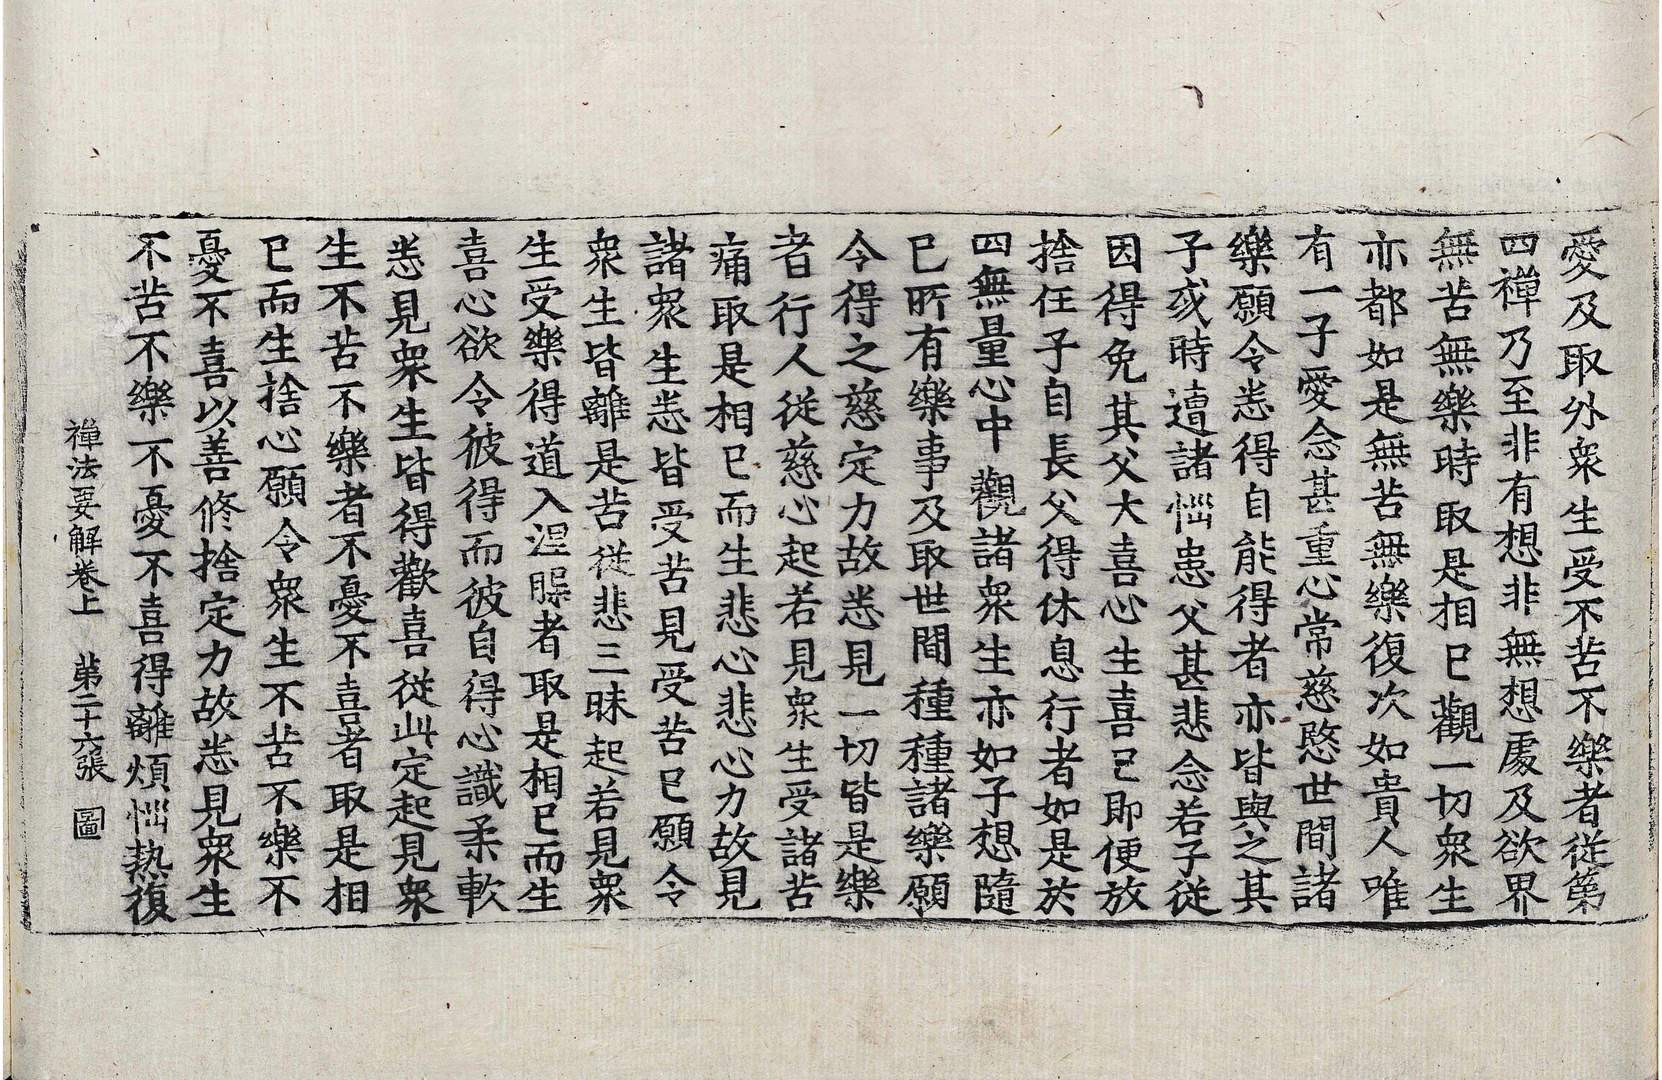 愛及取外衆生受不苦不樂者從第
四禪乃至非有想非無想處及欲界
無苦無樂時取是相已觀一切衆生
亦都如是無苦無樂復次如貴人唯
有一子愛念甚重心常慈愍世間諸
樂願令悉得自能得者亦皆與之其
子或時遭諸惱患父甚悲念若子從
因得免其父大喜心生喜已即便放
捨任子自長父得休息行者如是於
四無量心中觀諸衆生亦如子想隨
已所有樂事及取世間種種諸樂願
令得之慈定力故悉見一切皆是樂
者行人從慈心起若見衆生受諸苦
痛取是相已而生悲心悲心力故見
諸衆生悉皆受苦見受苦已願令
衆生皆離是苦從悲三昧起若見衆
生受樂得道入涅槃者取是相已而生
喜心欲令彼得而彼自得心識柔軟
悉見衆生皆得歡喜從此定起見衆
生不苦不樂者不憂不喜者取是相
已而生捨心願令衆生不苦不樂不
憂不喜以善修捨定力故悉見衆生
不苦不樂不憂不喜得離煩惱熱復
禪法要解卷上 第二十六張 圖